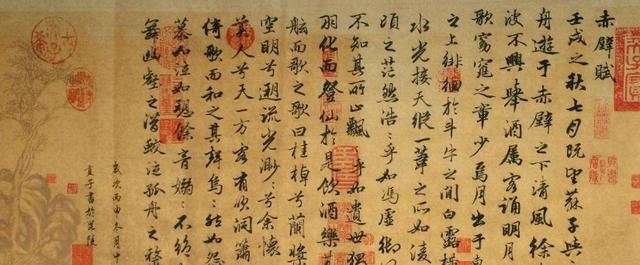 赤壁賦
壬戌之秋七月既望蘇子與
舟遊于赤壁之下清風徐
波不興舉酒属客誦明月
歌窈窕之章少焉月出于東
之上徘徊於斗牛之間白露橫
水光接天縱一葦之所如淩
頃之茫然浩〻乎如馮虛御
不知其所止飄〻乎如遺世獨
羽化而登仙於是飲酒樂甚
舷而歌之歌曰桂棹兮蘭槳
空明兮遡流光渺〻兮余懷
美人兮天一方客有吹洞簫
倚歌而和之其聲烏〻然如怨
慕如泣如訴餘音嫋〻不絕
舞幽壑之潛蛟泣孤舟之嫠
歲次丙申冬月中
子書於